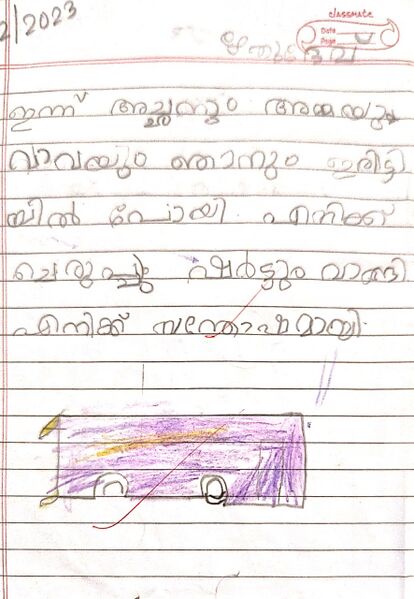 2/2023
classmate
Date
Page
ഋതുദേവ്
ഇന്ന് അച്ഛനും അമ്മയും
വാവയും ഞാനും ഇരിട്ടി
യിൽ പോയി. എനിക്ക്
ചെരുപ്പും ഷർട്ടും വാങ്ങി
എനിക്ക് സന്തോഷമായി.